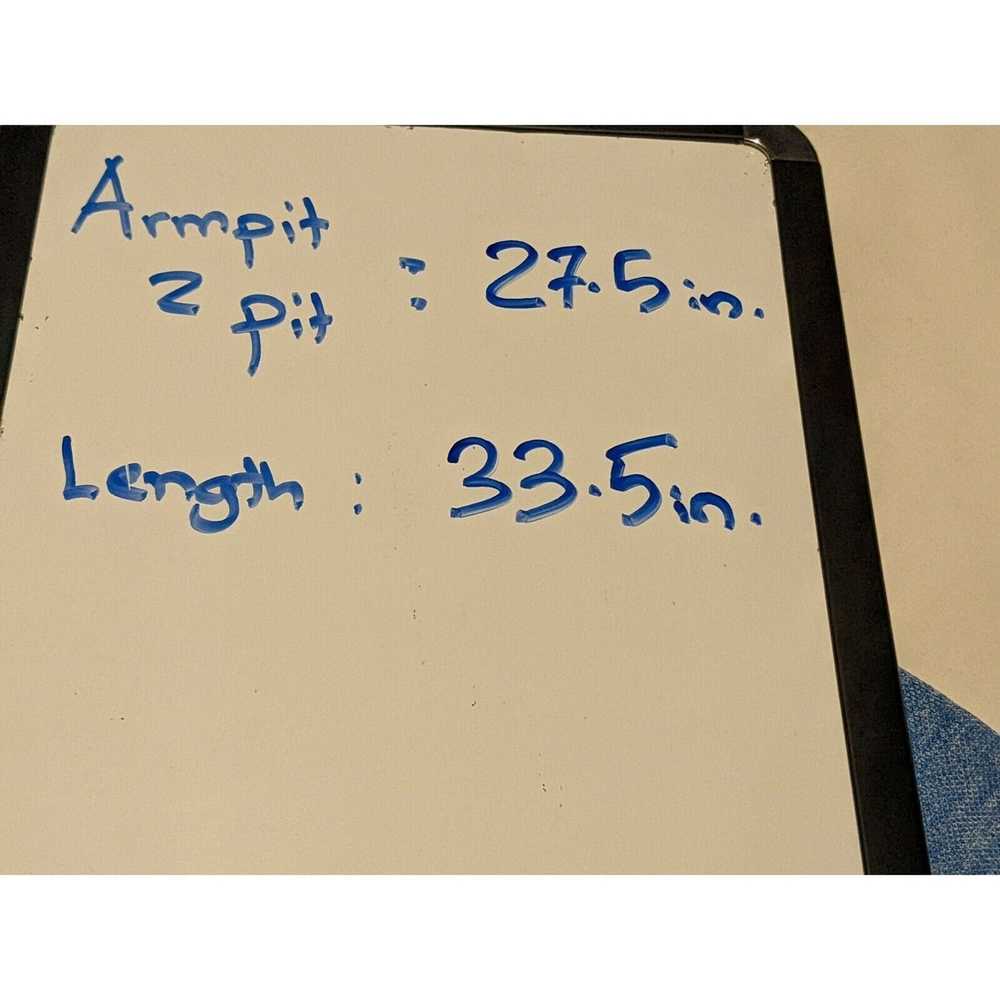 Armpit
2 pit : 27.5 in.
Length : 33.5 in.